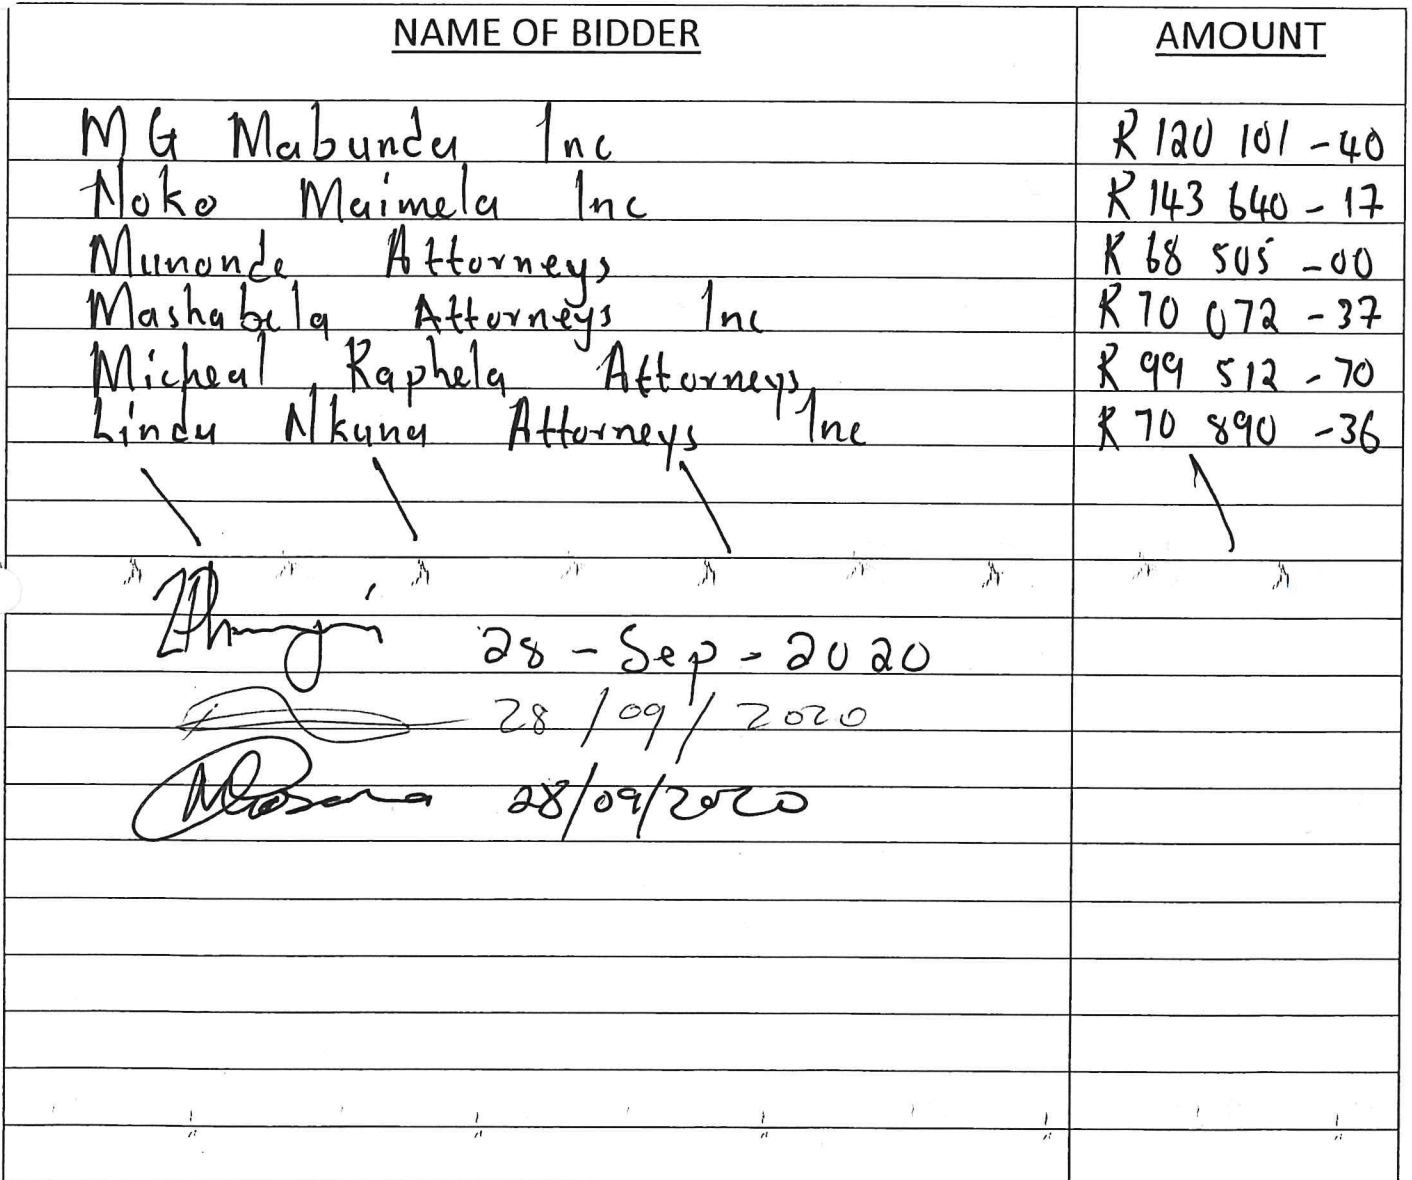 NAME OF BIDDER AMOUNT
MG Mabunda Inc R 120 101 - 40
Noko Maimela Inc R 143 640 - 17
Munonde Attorneys R 68 505 - 00
Mashabela Attorneys Inc R 70 072 - 37
Micheal Raphela Attorneys R 99 512 - 70
Linda Nkuna Attorneys Inc R 70 890 - 36
28 - Sep - 2020
28/09/2020
28/09/2020